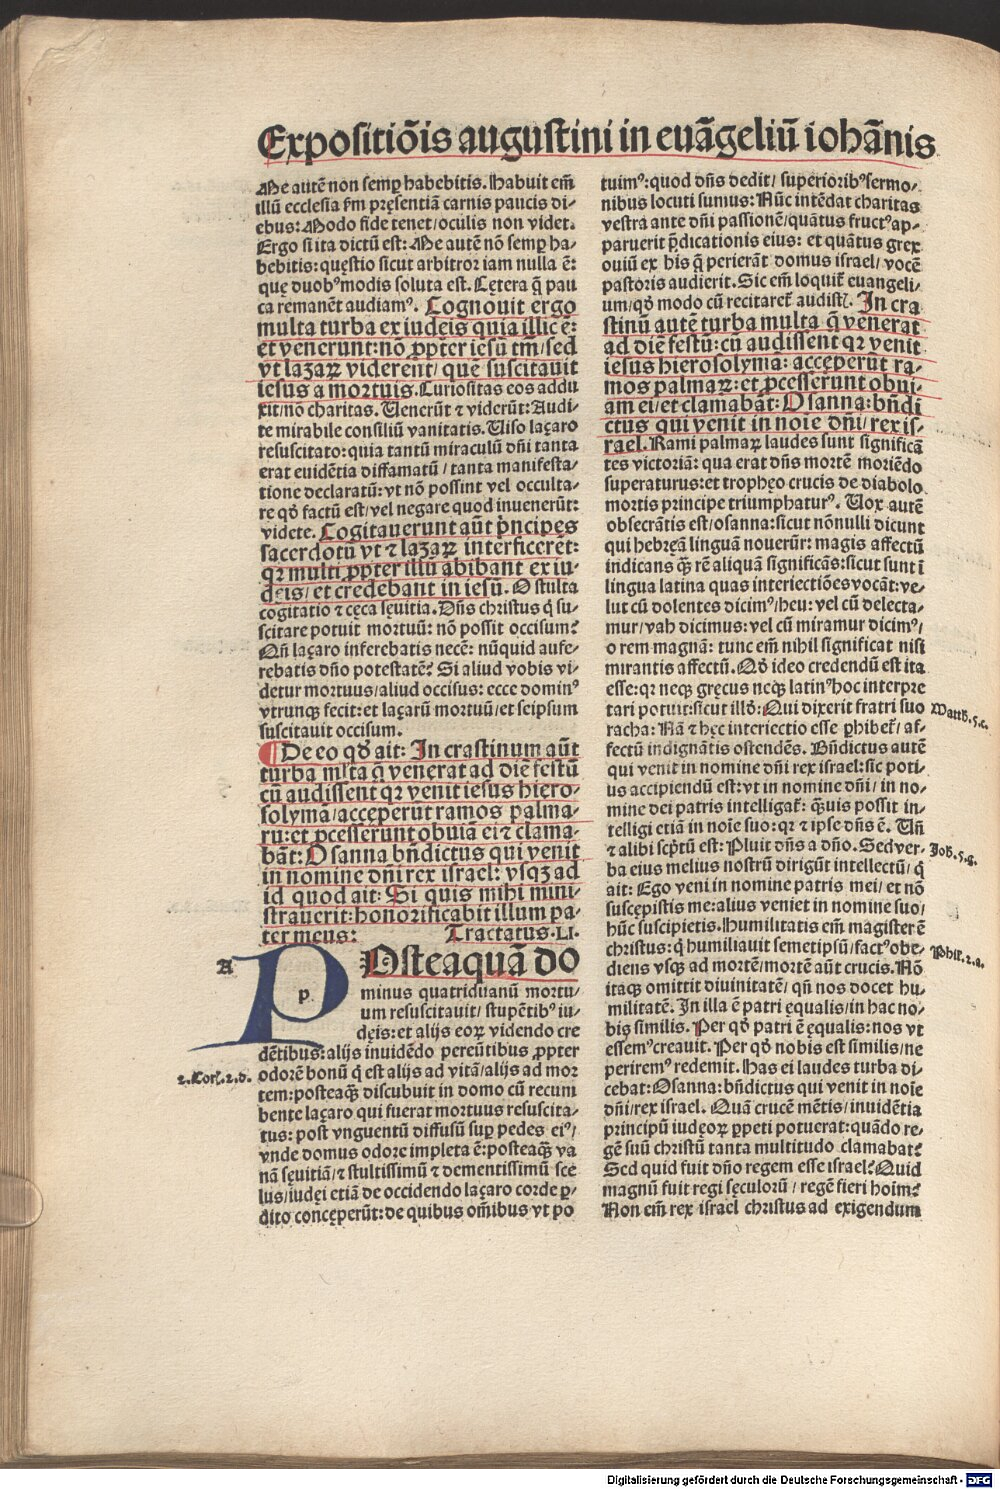 Expositiōis augustini in euāgeliū iohānis
Me autē non semꝑ habebitis. Habuit em̄
illū ecclesia ẜm pręsentiā carnis paucis di-
ebus: Modo fide tenet/oculis non videt.
Ergo si ita dictū est: Me autē nō semꝑ ha-
bebitis: quęstio sicut arbitror iam nulla ē:
quę duobꝰ modis soluta est. Cętera q̄ pau
ca remanēt audiamꝰ. Cognouit ergo
multa turba ex iudeis quia illic ē:
et venerunt: nō ꝓpter iesū tm̄/sed
vt lazaꝝ viderent/que suscitauit
iesus a mortuis. Curiositas eos addu
xit/nō charitas. Uenerūt ⁊ viderūt: Audi-
te mirabile consiliū vanitatis. Uiso laçaro
resuscitato: quia tantū miraculū dn̄i tanta
erat euidētia diffamatū/tanta manifesta-
tione declaratū: vt nō possint vel occulta-
re qḋ factū est/vel negare quod inuenerūt:
videte. Cogitauerunt aūt p̄ncipes
sacerdotū vt ⁊ lazaꝝ interficerēt:
qꝛ multi ꝓpter illū abibant ex iu-
deis/et credebant in iesū. O stulta
cogitatio ⁊ cęca sęuitia. Dn̄s christus q̇ su-
scitare potuit mortuū: nō possit occisum?
Qn̄ laçaro inferebatis necē: nūquid aufe-
rebatis dn̄o potestatē? Si aliud vobis vi-
detur mortuus/aliud occisus: ecce dominꝰ
vtrunqꝫ fecit: et laçarū mortuū/et seipsum
suscitauit occisum.
¶ De eo qḋ ait: In crastinum aūt
turba ml̄ta q̄ venerat ad diē festū
cū audissent qꝛ venit iesus hiero-
solymā/accęperūt ramos palma-
ru: et ꝓcesserunt obuiā ei ⁊ clama-
bāt: Osanna bn̄dictus qui venit
in nomine dn̄i rex israel: vsqꝫ ad
id quod ait: Si quis mihi mini-
strauerit: honorificabit illum pa-
ter meus: Tractatus .LI.
A
p
POsteaquā do
minus quatriduanū mortu-
um resuscitauit/stupētibꝰ iu-
dęis: et alijs eoꝝ videndo cre
dētibus: alijs inuidēdo pereūtibus ꝓpter
2. Cor. 2. d.
odorē bonū q̇ est alijs ad vitā/alijs ad mor
tem: posteaqꝫ discubuit in domo cū recum
bente laçaro qui fuerat mortuus resuscita-
tus: post vnguentū diffusū suꝑ pedes eiꝰ/
vnde domus odore impleta ē: posteaqꝫ va
nā sęuitiā/⁊ stultissimū ⁊ dementissimū sce
lus/iudęi etiā de occidendo laçaro corde ꝑ-
dito concęperūt: de quibus om̄ibus vt po
tuimꝰ: quod dn̄s dedit/superioribꝰ sermo-
nibus locuti sumus: Nūc intēdat charitas
vestra ante dn̄i passionē/quātus fructꝰ ap-
paruerit p̄dicationis eius: et quātus grex
ouiū ex his q̄ perierāt domus israel/vocē
pastoris audierit. Sic em̄ loquit᷑ euangeli-
um/qḋ modo cū recitaret᷑ audistꝭ. In cra
stinū autē turba multa q̄ venerat
ad diē festū: cū audissent qꝛ venit
iesus hierosolymā: accęperūt ra-
mos palmaꝝ: et ꝓcesserunt obui-
am ei/et clamabāt: Osanna: bn̄di
ctus qui venit in noīe dn̄i/rex is-
rael. Rami palmaꝝ laudes sunt significā
tes victoriā: qua erat dn̄s mortē moriēdo
superaturus: et trophęo crucis de diabolo
mortis principe triumphaturꝰ. Uox autē
obsecrātis est/osanna: sicut nōnulli dicunt
qui hebręā linguā nouerūt: magis affectū
indicans qꝫ rē aliquā significās: sicut sunt ī
lingua latina quas interiectiōes vocāt: ve-
lut cū dolentes dicimꝰ/heu: vel cū delecta-
mur/vah dicimus: vel cū miramur dicimꝰ/
o rem magnā: tunc em̄ nihil significat nisi
mirantis affectū. Qḋ ideo credendū est ita
esse: qꝛ neqꝫ gręcus neqꝫ latinꝰ hoc interpre
tari potuit: sicut illḋ: Qui dixerit fratri suo
Matth. 5. c.
racha: Nā ⁊ hęc interiectio esse ꝑhibet᷑/af-
fectū indignātis ostendēs. Bn̄dictus autē
qui venit in nomine dn̄i rex israel: sic poti-
us accipiendū est: vt in nomine dn̄i/in no-
mine dei patris intelligat᷑: q̄uis possit in-
telligi etiā in noīe suo: qꝛ ⁊ ipse dn̄s ē. Un̄
⁊ alibi scp̄tū est: Pluit dn̄s a dn̄o. Sed ver-
Joh. 5. g.
ba eius melius nostrū dirigūt intellectū/q̇
ait: Ego veni in nomine patris mei/et nō
suscępistis me: alius veniet in nomine suo/
hūc suscipietis. Humilitatis em̄ magister ē
christus: q̇ humiliauit semetipsū/factꝰ obe-
Phil. 2. a.
diens vsqꝫ ad mortē/mortē aūt crucis. Nō
itaqꝫ omittit diuinitatē/qn̄ nos docet hu-
militatē. In illa ē patri ęqualis/in hac no-
bis similis. Per qḋ patri ē ęqualis: nos vt
essemꝰ creauit. Per qḋ nobis est similis/ne
periremꝰ redemit. Has ei laudes turba di-
cebat: Osanna: bn̄dictus qui venit in noīe
dn̄i/rex israel. Quā crucē mētis/inuidētia
principū iudęoꝝ ꝑpeti potuerat: quādo re-
gē suū christū tanta multitudo clamabat?
Sed quid fuit dn̄o regem esse israel? Quid
magnū fuit regi sęculorū/regē fieri hoim̄?
Non em̄ rex israel christus ad exigendum
Digitalisierung gefördert durch die Deutsche Forschungsgemeinschaft - DFG